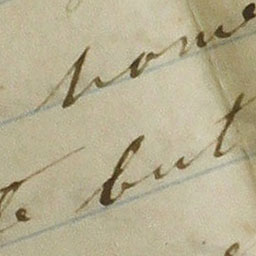 home
but